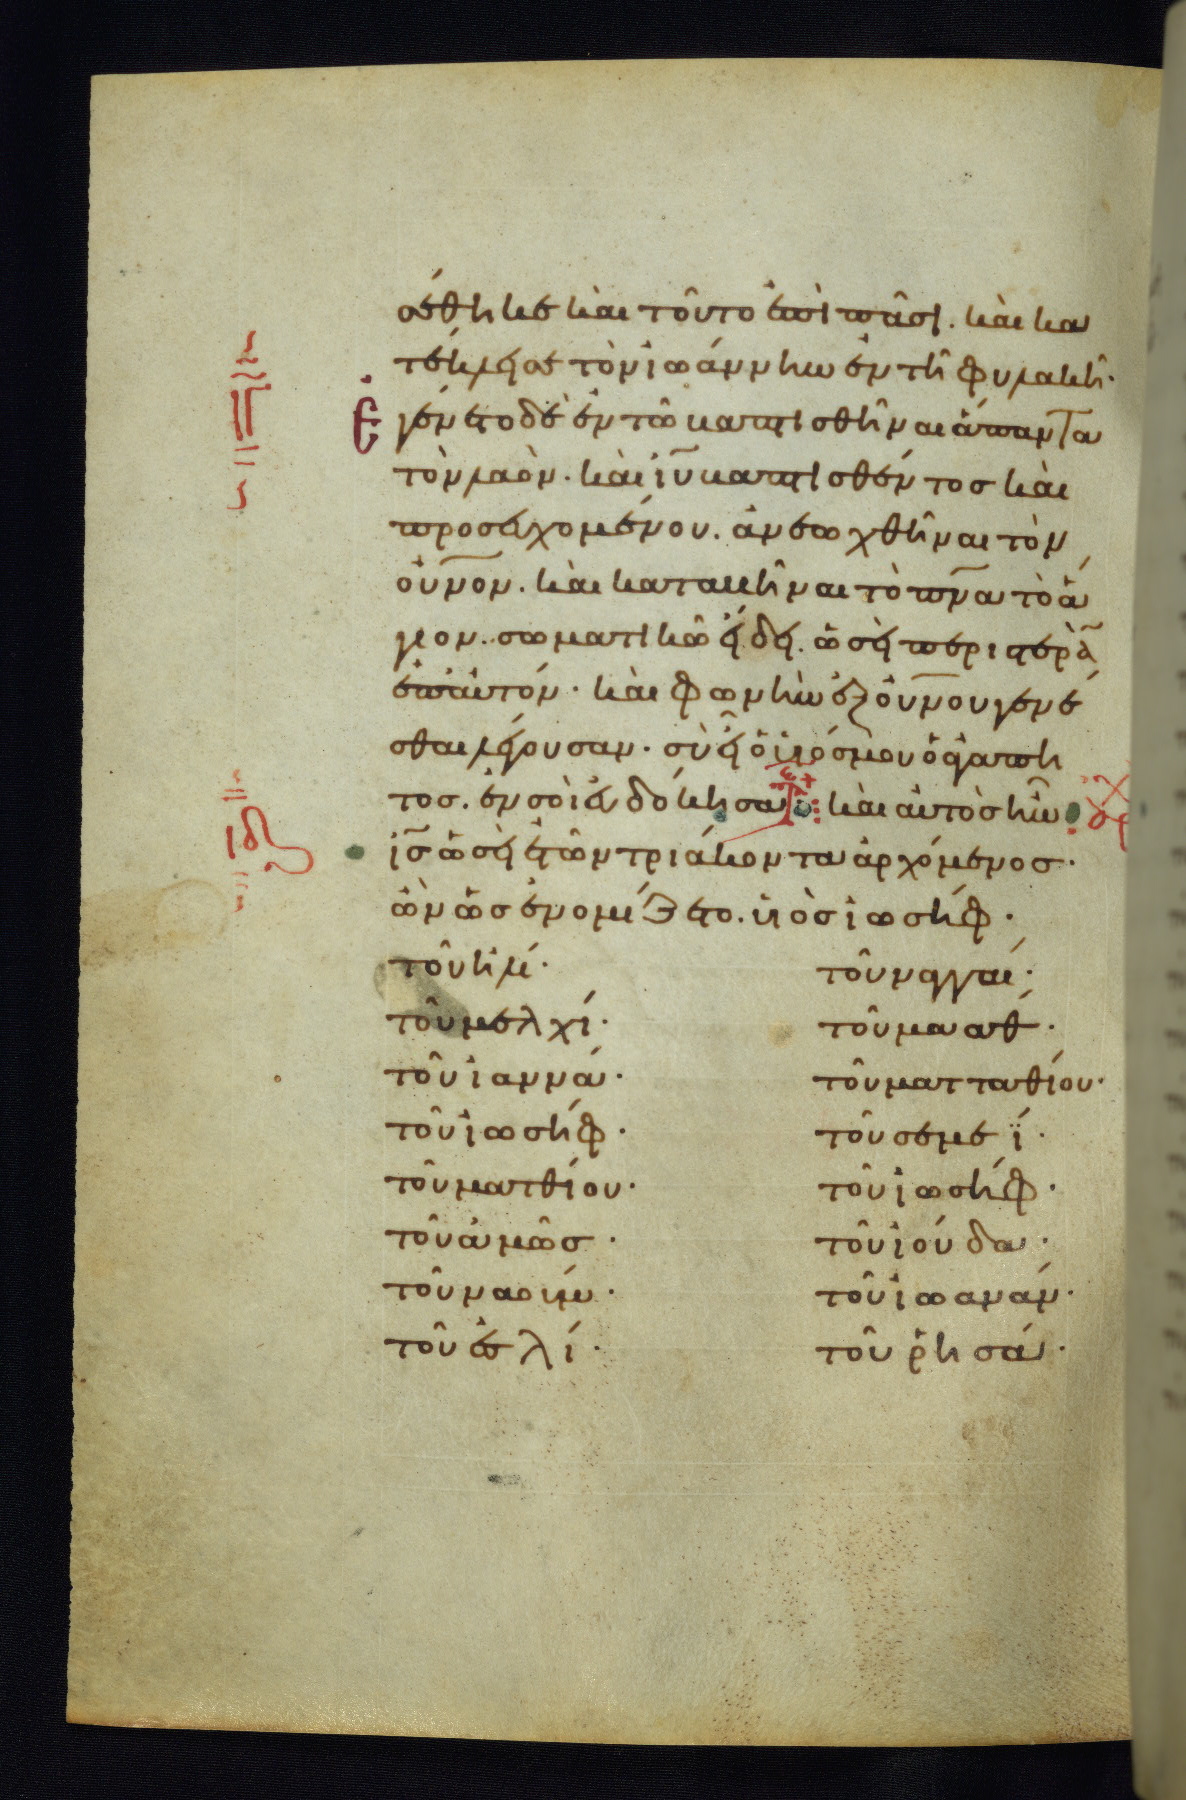 σέθηκε καὶ τοῦτο ἐπὶ πᾶσι. καὶ κα
τέκλεισε τὸν ἰωάννην ἐν τῆ φυλακῆ·
Ἐγένετο δὲ ἐν τῶ βαπτισθῆναι ἅπαντα
τὸν λαὸν. καὶ ἰῦ βαπτισθέντος καὶ
προσευχομένου. ἀνεωχθῆναι τὸν
οὐνον. καὶ καταβῆναι τὸ πνα τὸ ἅ
γιον. σωματικῶ εἴδει. ὡσεὶ περιστερὰν
ἐπ' αὐτόν. καὶ φωνὴν ἐξ οὐνου γενέ
σθαι λέγουσαν. σὺ εἶ ὁ υἱός μου ὁ ἀγαπη
τος. ἐν σοὶ εὐδόκησα τε καὶ αὐτὸς ἦν
ιδ ἰς ὡσεὶ ἐτῶν τριάκοντα ἀρχόμενος·
ὢν ὡς ἐνομίζετο. υἱὸς ἰωσήφ·
τοῦ ἡλί·
τοῦ μελχί·
τοῦ ἰαννά·
τοῦ ἰωσήφ·
τοῦ ματθίου·
τοῦ ἀμῶς·
τοῦ ναούμ·
τοῦ ἐσλί·
τοῦ ναγγαί·
τοῦ μααθ·
τοῦ ματταθίου·
τοῦ σεμεΐ·
τοῦ ἰωσήφ·
τοῦ ἰούδα·
τοῦ ἰωανάν·
τοῦ ῥησά·